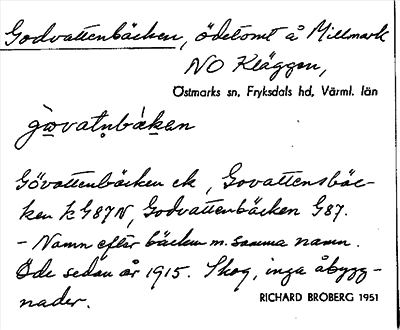 Godvattenbäcken, ödetomt å Millmark
NO Kläggen,
Östmarks sn, Fryksdals hd, Värml. län
gɷvatn̥bäkan
Gövattenbäcken ek, Govattensbäc-
ken k G87N, Godvattenbäcken G87.
- Namn efter bäcken m. samma namn.
Öde sedan år 1915. Skog, inga åbygg-
nader.
RICHARD BROBERG 1951